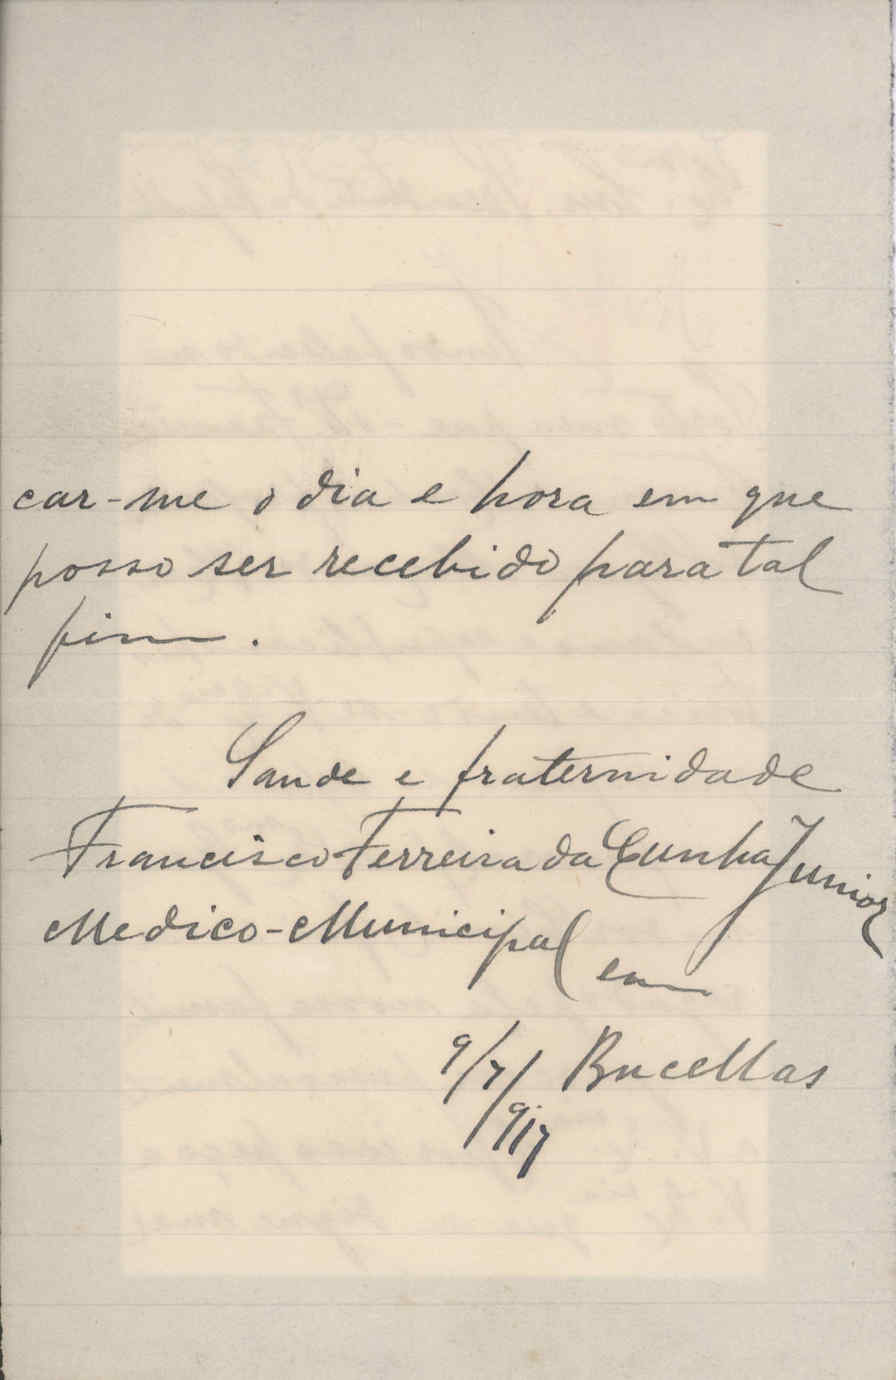 car-me o dia e hora em que
posso ser recebido para tal
fim.
Saude e fraternidade
Francisco Ferreira da Cunha Junior
Medico-Municipal em
Bucellas
9/7/917